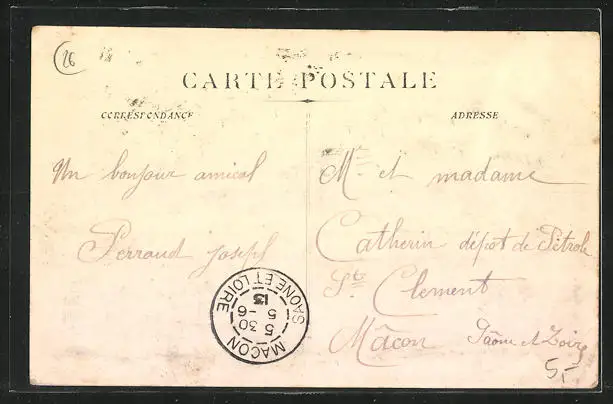 26
CARTE POSTALE
CORRESPONDANCE
ADRESSE
Un bonjour amical
Perraud joseph
Mr et madame
Catherin dépot de Pétrole
St Clement
Mâcon Saône et Loire
MACON
5 30
5 -6
13
SAONE ET LOIRE
5,-